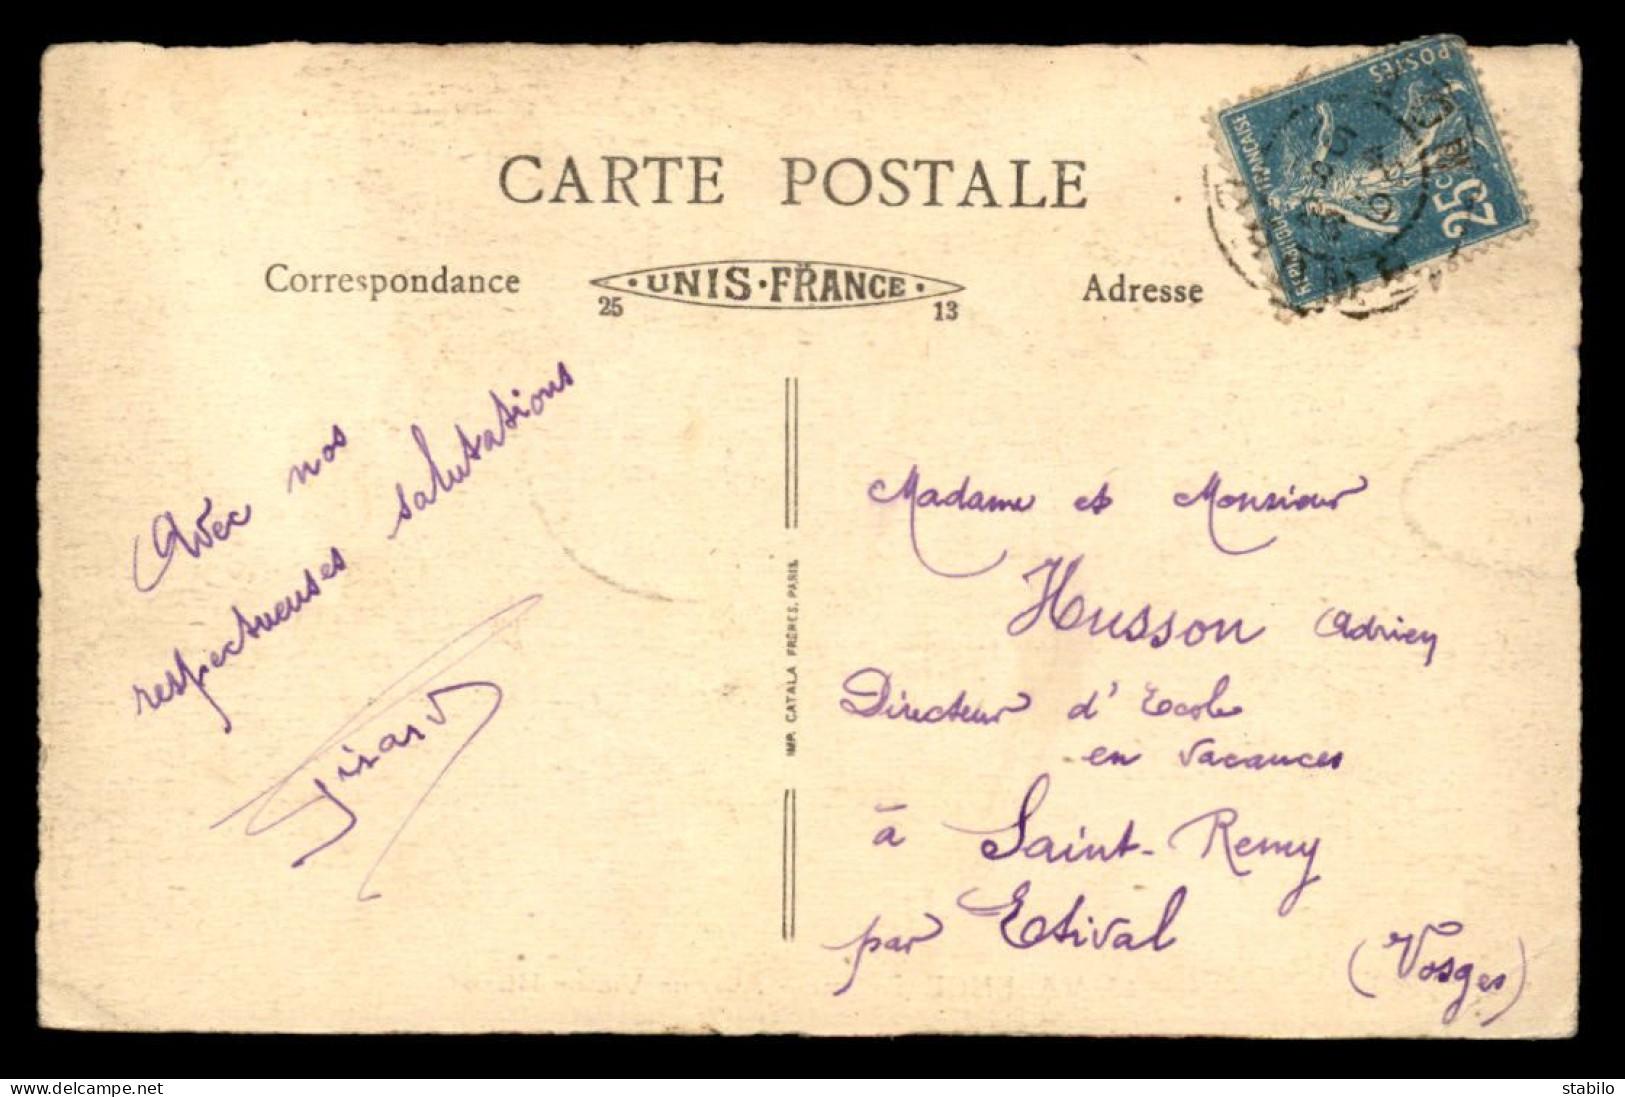 CARTE POSTALE
Correspondance
UNIS·FRANCE·
25 13
Adresse
POSTES
25c
FRANÇAISE
Avec nos
respectueuses salutations
Girard
IMP. CATALA FRÈRES, PARIS.
Madame et Monsieur
Husson Adrien
Directeur d'Ecole
en vacances
à Saint-Remy
par Etival
(Vosges)
delcampe.net
stabilo